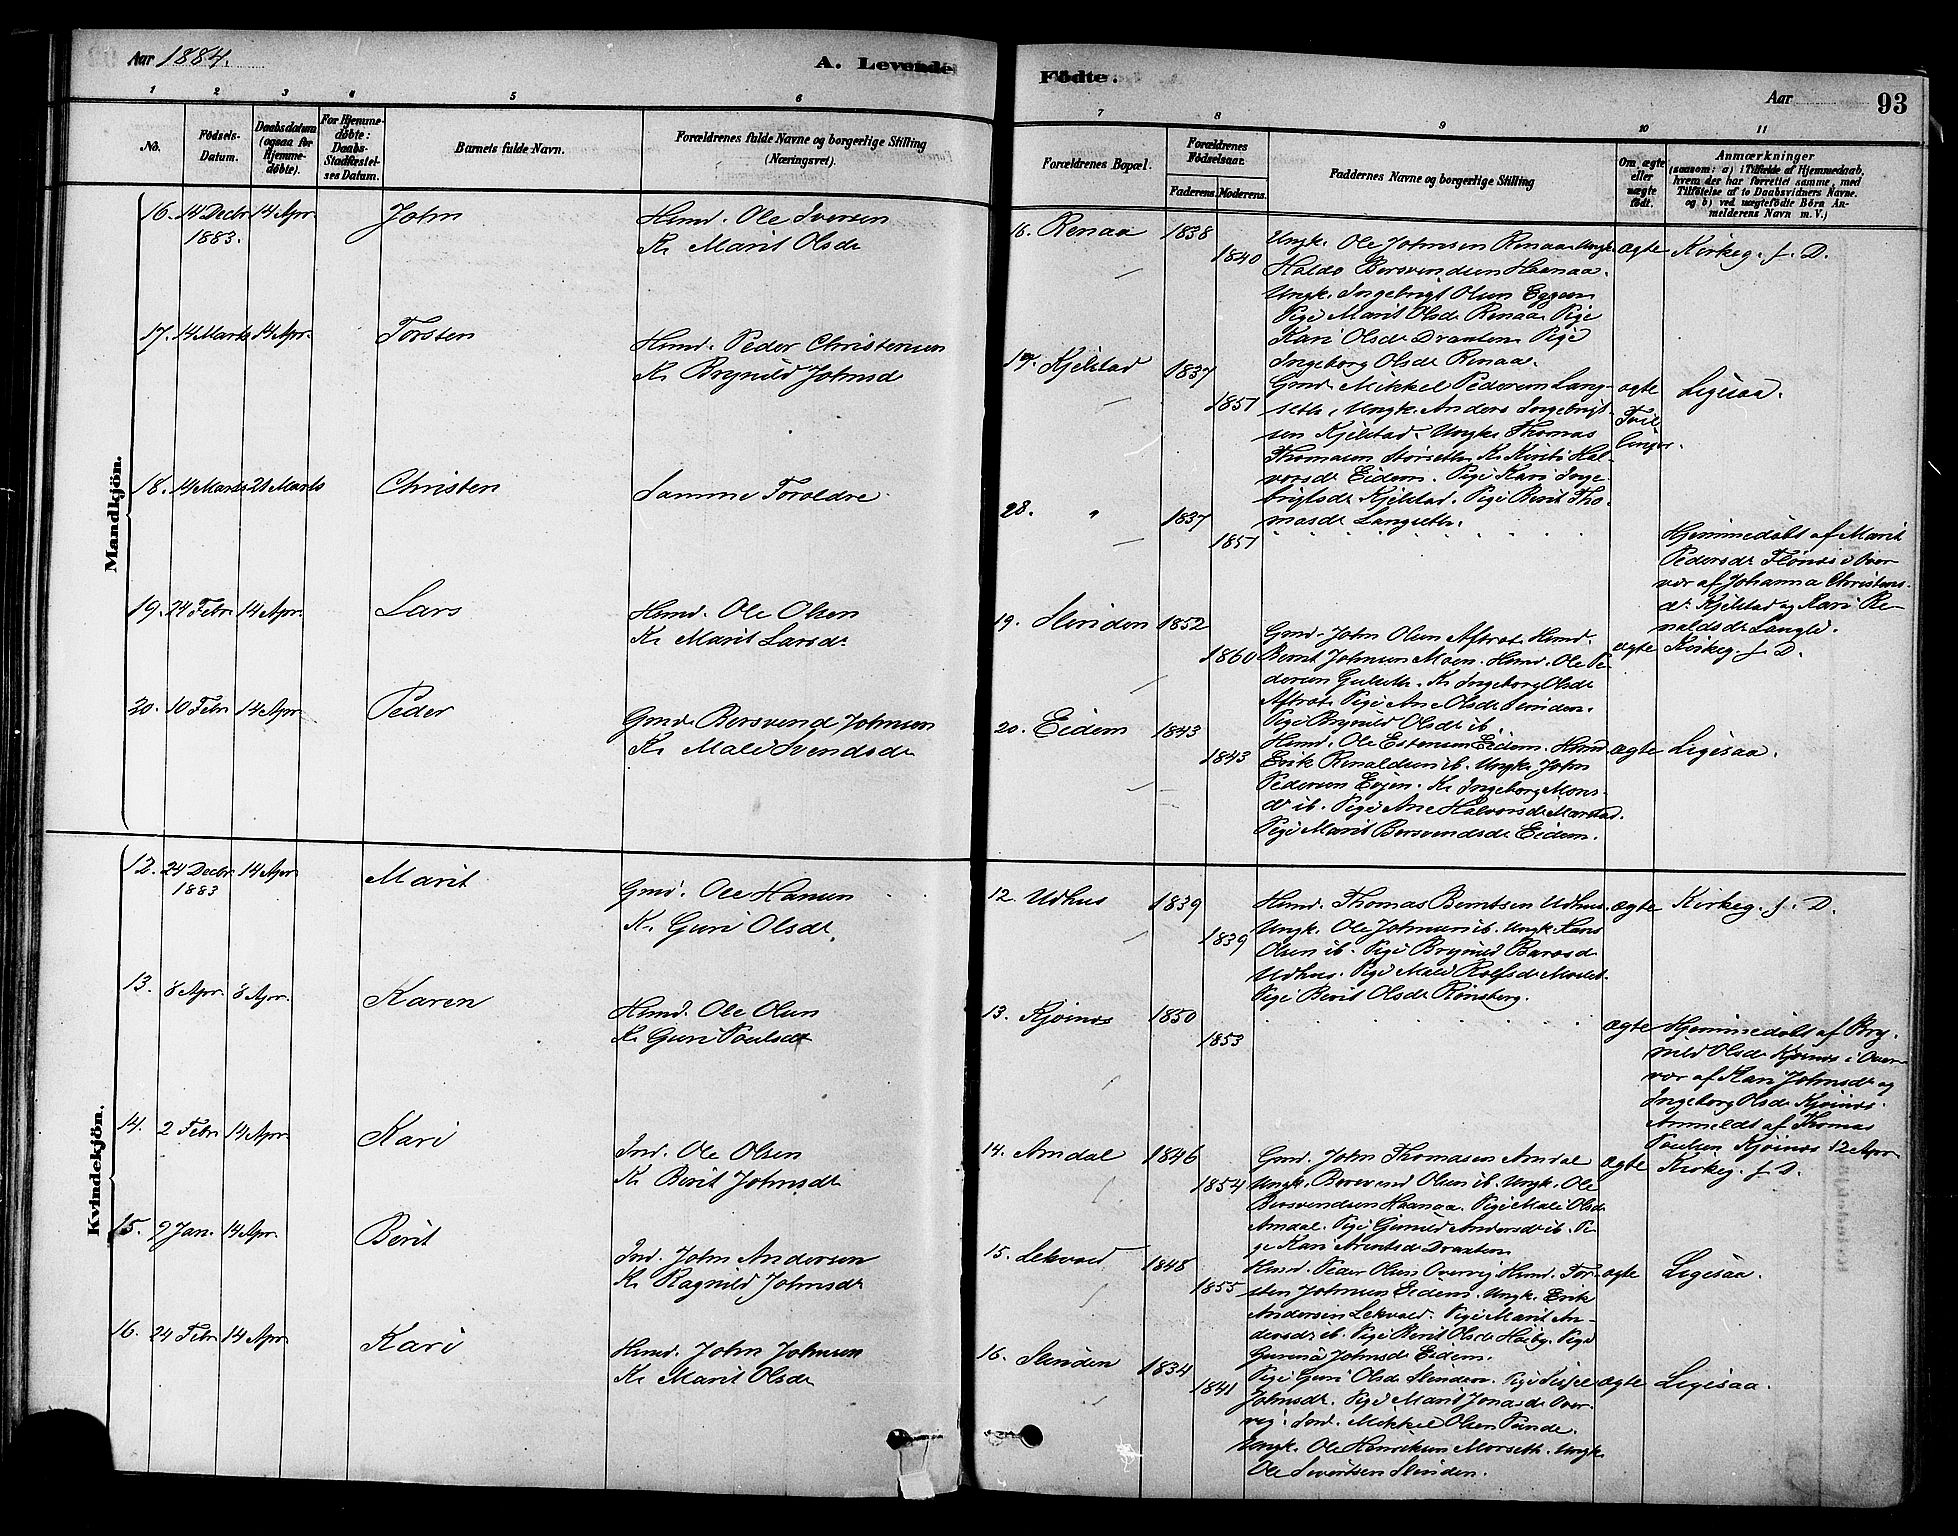 Aar 1884.
A. Levende
Födte.
Aar
93
1
2
3
4
5
6
7
8
9
10
11
No.
Födsels-
Datum.
Daabsdatum
(ogsaa for
Hjemme-
döbte).
For Hjemme-
döbte:
Daabs-
Stadfæstel-
ses Datum.
Barnets fulde Navn.
Forældrenes fulde Navne og borgerlige Stilling
(Næringsvei).
Forældrenes Bopæl.
Forældrenes
Födselsaar.
Faderens.
Moderens.
Faddernes Navne og borgerlige Stilling
Om ægte
eller
uægte
födt.
Anmærkninger
(saasom: a) i Tilfælde af Hjemmedaab,
hvem der har forrettet samme, med
Tilföielse af to Daabsvidners Navne.
og b) ved uægtefödte Börn An-
melderens Navn m. V.)
Mandkjön.
16. 14 Decbr 1883. 14 Apr John
Hmd. Ole Iversen
K. Marit Olsdr
16. Renaa 1838 1840
Ungk. Ole Johnsen Renaa. Ungk.
Haldo Bersvendsen Haanaa.
Ungk. Ingebrigt Olsen Eggen
Pige Marit Olsdr Renaa. Pige
Kari Olsdr Draxten. Pige
Ingeborg Olsdr Renaa.
ægte
Kirkeg. f. D.
17. 14 Marts 14 Apr. Torsten
Hmd. Peder Christensen
K. Brynild Johnsd
17. Kjelstad 1837 1857
Gmd. Mikkel Pedersen Lang-
seth, Ungk. Anders Ingebrigt-
sen Kjelstad. Ungk. Thomas
Thomasen Morseth. K. Kirsti Hal-
vorsdr Eidem. Pige Kari Inge-
brigtsdr Kjelstad. Pige Berit Tho-
masdr Langseth.
ægte
Tvil-
linger.
Ligesaa.
18. 14 Marts 21 Marts Christen
Samme Foroldre
28. " 1837 1857
Hjemmedøbt af Marit
Pedersdr Flønes i Over-
vær af Johanna Christens-
dr Kjelstad og Kari Re-
naldsdr Langld.
19. 24 Febr 14 Apr. Lars
Hmd. Ole Olsen
K. Marit Larsdr
19. Slinden 1852 1860
Gmd. John Olsen Aftret. Hmd.
Bernt Johnsen Moen. Hmd. Ole Pe-
dersen Gulseth. K. Ingeborg Olsdr
Aftret. Pige Ane Olsdr Slinden.
Pige Brynild Olsdr ib.
ægte
Kirkeg. f. D.
20. 10 Febr. 14 Apr. Peder
Gmd. Bersvend Johnsen
K. Mali Svendsdr
20. Eidem 1843 1843
Hmd. Ole Estensen Eidem. Hmd.
Erik Renaldsen ib. Ungk. John
Pedersen Evjen. K. Ingeborg Mons-
dr ib. Pige Ane Halvorsdr Marstad.
Pige Marit Bersvendsdr Eidem.
ægte
Ligesaa.
Kvindekjön.
12. 24 Decbr 1883 14 Apr Marit
Gmd. Ole Hansen
K. Guri Olsdr.
12. Udhus 1839 1839
Hmd. Thomas Berntsen Udhus.
Ungk. Ole Johnsen ib. Ungk. Lars
Olsen ib. Pige Brynild Larsdr
Udhus. Pige Mali Rolfsdr Moslet.
Pige Berit Olsdr Rønsberg.
ægte
Kirkeg. f. D.
13. 8 Apr. 8 Apr. Karen
Hmd. Ole Olsen
K. Guri Poulsdr
13. Kjøsnes 1850 1853
ægte
Hjemmedøbt af Bry-
nild Olsdr Kjøsnes i Over-
vær af Kari Johnsdr og
Ingeborg Olsdr Kjøsnes.
Anmeldt af Thomas
Poulsen Kjøsnes 12 Apr
14. 2 Febr 14 Apr. Kari
Ind. Ole Olsen
K. Berit Johnsdr
14. Amdal 1846 1854
Gmd. John Thomasen Amdal
Ungk. Bersvend Olsen ib. Ungk. Ole
Bersvendsen Haanaa. Pige Mali Olsdr
Amdal. Pige Gunild Andersdr ib. Pi-
ge Kari Arentsdr Draxten
ægte
Kirkeg. f. D.
15. 2 Jan. 14 Apr. Berit
Ind. John Andersen
K. Ragnild Johnsdr
15. Lekvold 1848 1855
Hmd. Peder Olsen Overvig. Hmd. Tor-
sten Johnsen Eidem. Ungk. Erik
Andersen Lekvold. Pige Marit An-
dersdr ib. Pige Berit Olsdr Høiby. Pige
Gurina Johnsdr Eidem.
ægte
Ligesaa.
16. 24 Febr 14 Apr. Kari
Hmd. John Johnsen
K. Marit Olsdr
16. Slinden 1834 1841
Pige Guri Olsdr Slinden. Pige
Johnsdr. Pige Marit Jonasdr Over-
vig. Ind. Mikkel Olsen Punde.
Ungk. Ole Henriksen Morseth. Ungk.
Ole Sivertsen Slinden.
ægte
Ligesaa.